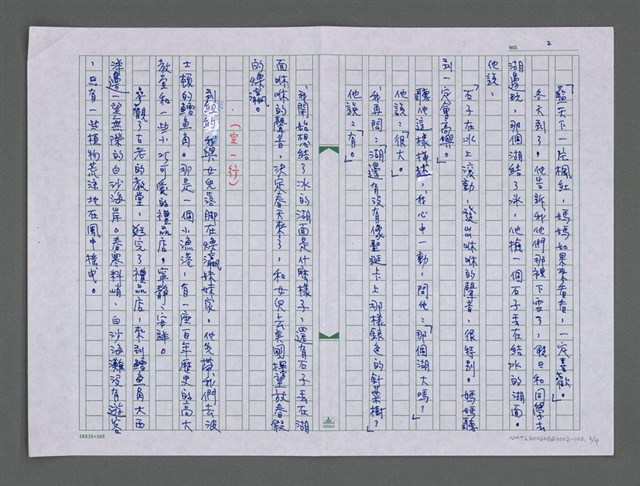 NO. 2
「藍天下一片楓紅，媽媽如果來看看，一定喜歡。」
冬天到了。他告訴我他們那裡下雪了，假日和同學去
湖邊玩，那個湖結了冰，他撿一個石子丟在結冰的湖面。
他說：
「石子在冰上滾動，發出咻咻的聲音，很特別。媽媽聽
到一定會高興。」
聽他這樣描述，我心中一動，問他：「那個湖大嗎？」
他說：「很大。」
我再問：「湖邊有沒有像聖誕卡上那樣銀色的針葉樹？」
他說：「有。」
我開始想結了冰的湖面是什麼樣子，四邊有石子丟在湖
面咻咻的聲音，決定春天來了，和女兒去美國探望放春假
的煥瀛。
(空一行)
到紐約，我與女兒落腳在煥瀛妹妹家，他先帶我們去波
士頓的鱈魚角。那是一個小漁港，有一座百年歷史的高大
教堂和一些小巧可愛的禮品店，寧靜、安詳。
參觀了古老的教堂，逛完了禮品店，來到鱈魚角大西
洋邊一望無際的白沙海岸。春寒料峭，白沙海灘沒有遊客
，只有一些植物荒涼地在風中搖曳。